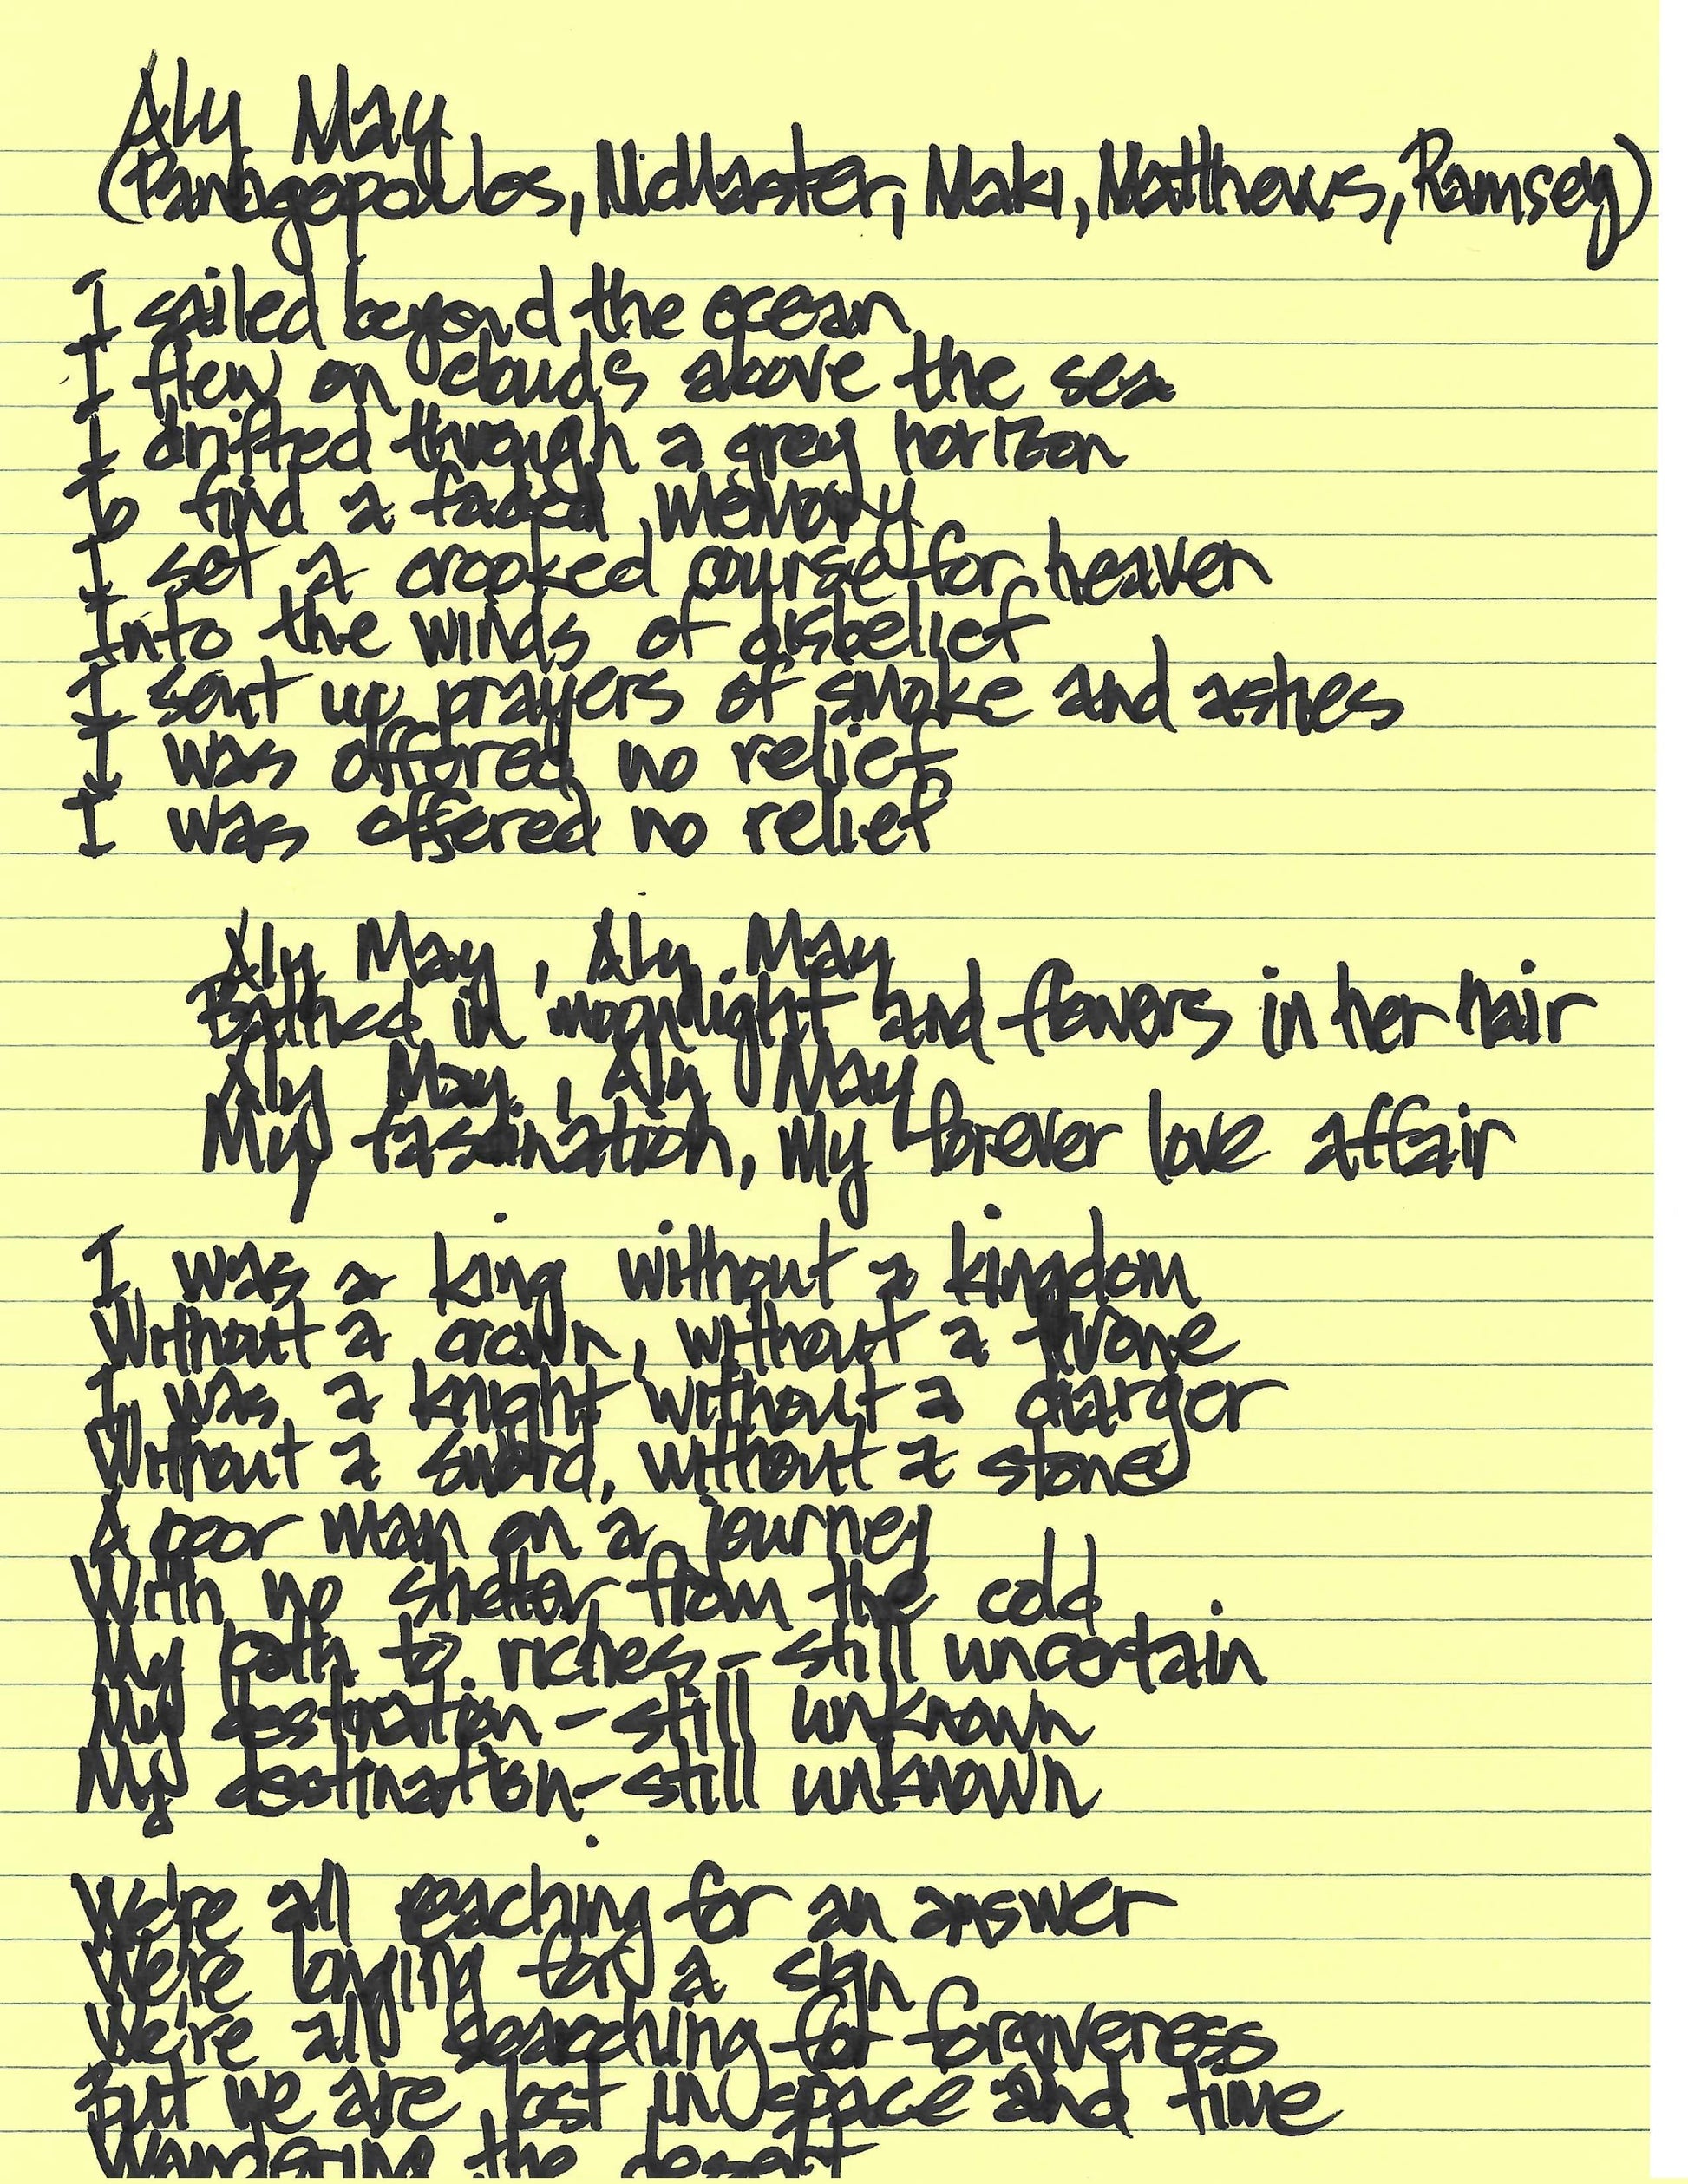 Aly May
(Panagopoulos, McMaster, Maki, Matthews, Ramsey)
I sailed beyond the ocean
I flew on clouds above the sea
I drifted through a grey horizon
To find a faded memory
I set a crooked course for heaven
Into the winds of disbelief
I sent up prayers of smoke and ashes
I was offered no relief
I was offered no relief
Aly May, Aly May
Bathed in moonlight and flowers in her hair
Aly May, Aly May
My fascination, my forever love affair
I was a king without a kingdom
Without a crown, without a throne
I was a knight without a charger
Without a sword, without a stone
A poor man on a journey
With no shelter from the cold
My path to riches - still uncertain
My destination - still unknown
My destination - still unknown
We're all reaching for an answer
We're longing for a sign
We're all searching for forgiveness
But we are lost in space and time
Wandering the desert